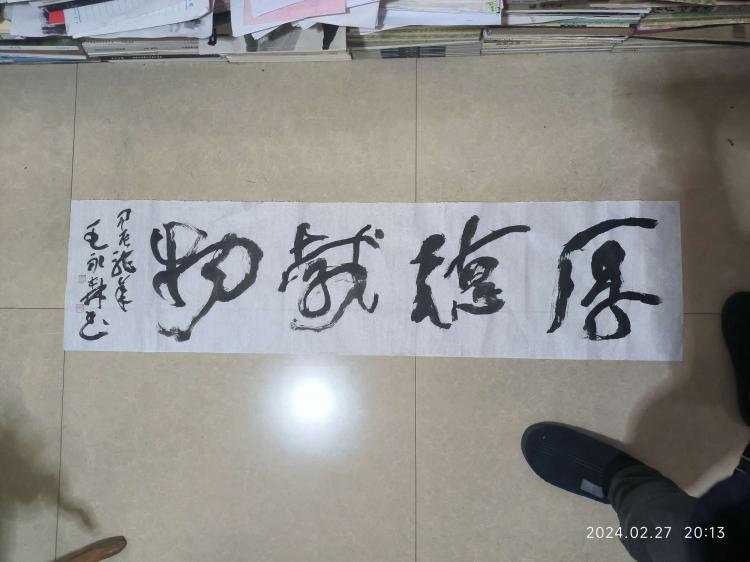 厚德载物
甲辰龙年
毛永静书
2024.02.27 20:13